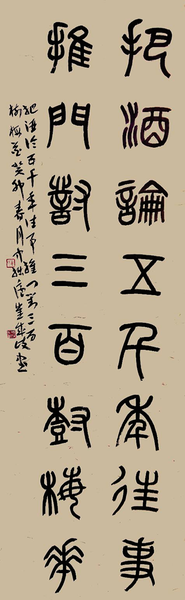 把酒論五千年往事
推門對三百樹梅花
把酒論五千年往事推門對三百
樹梅花癸卯春月